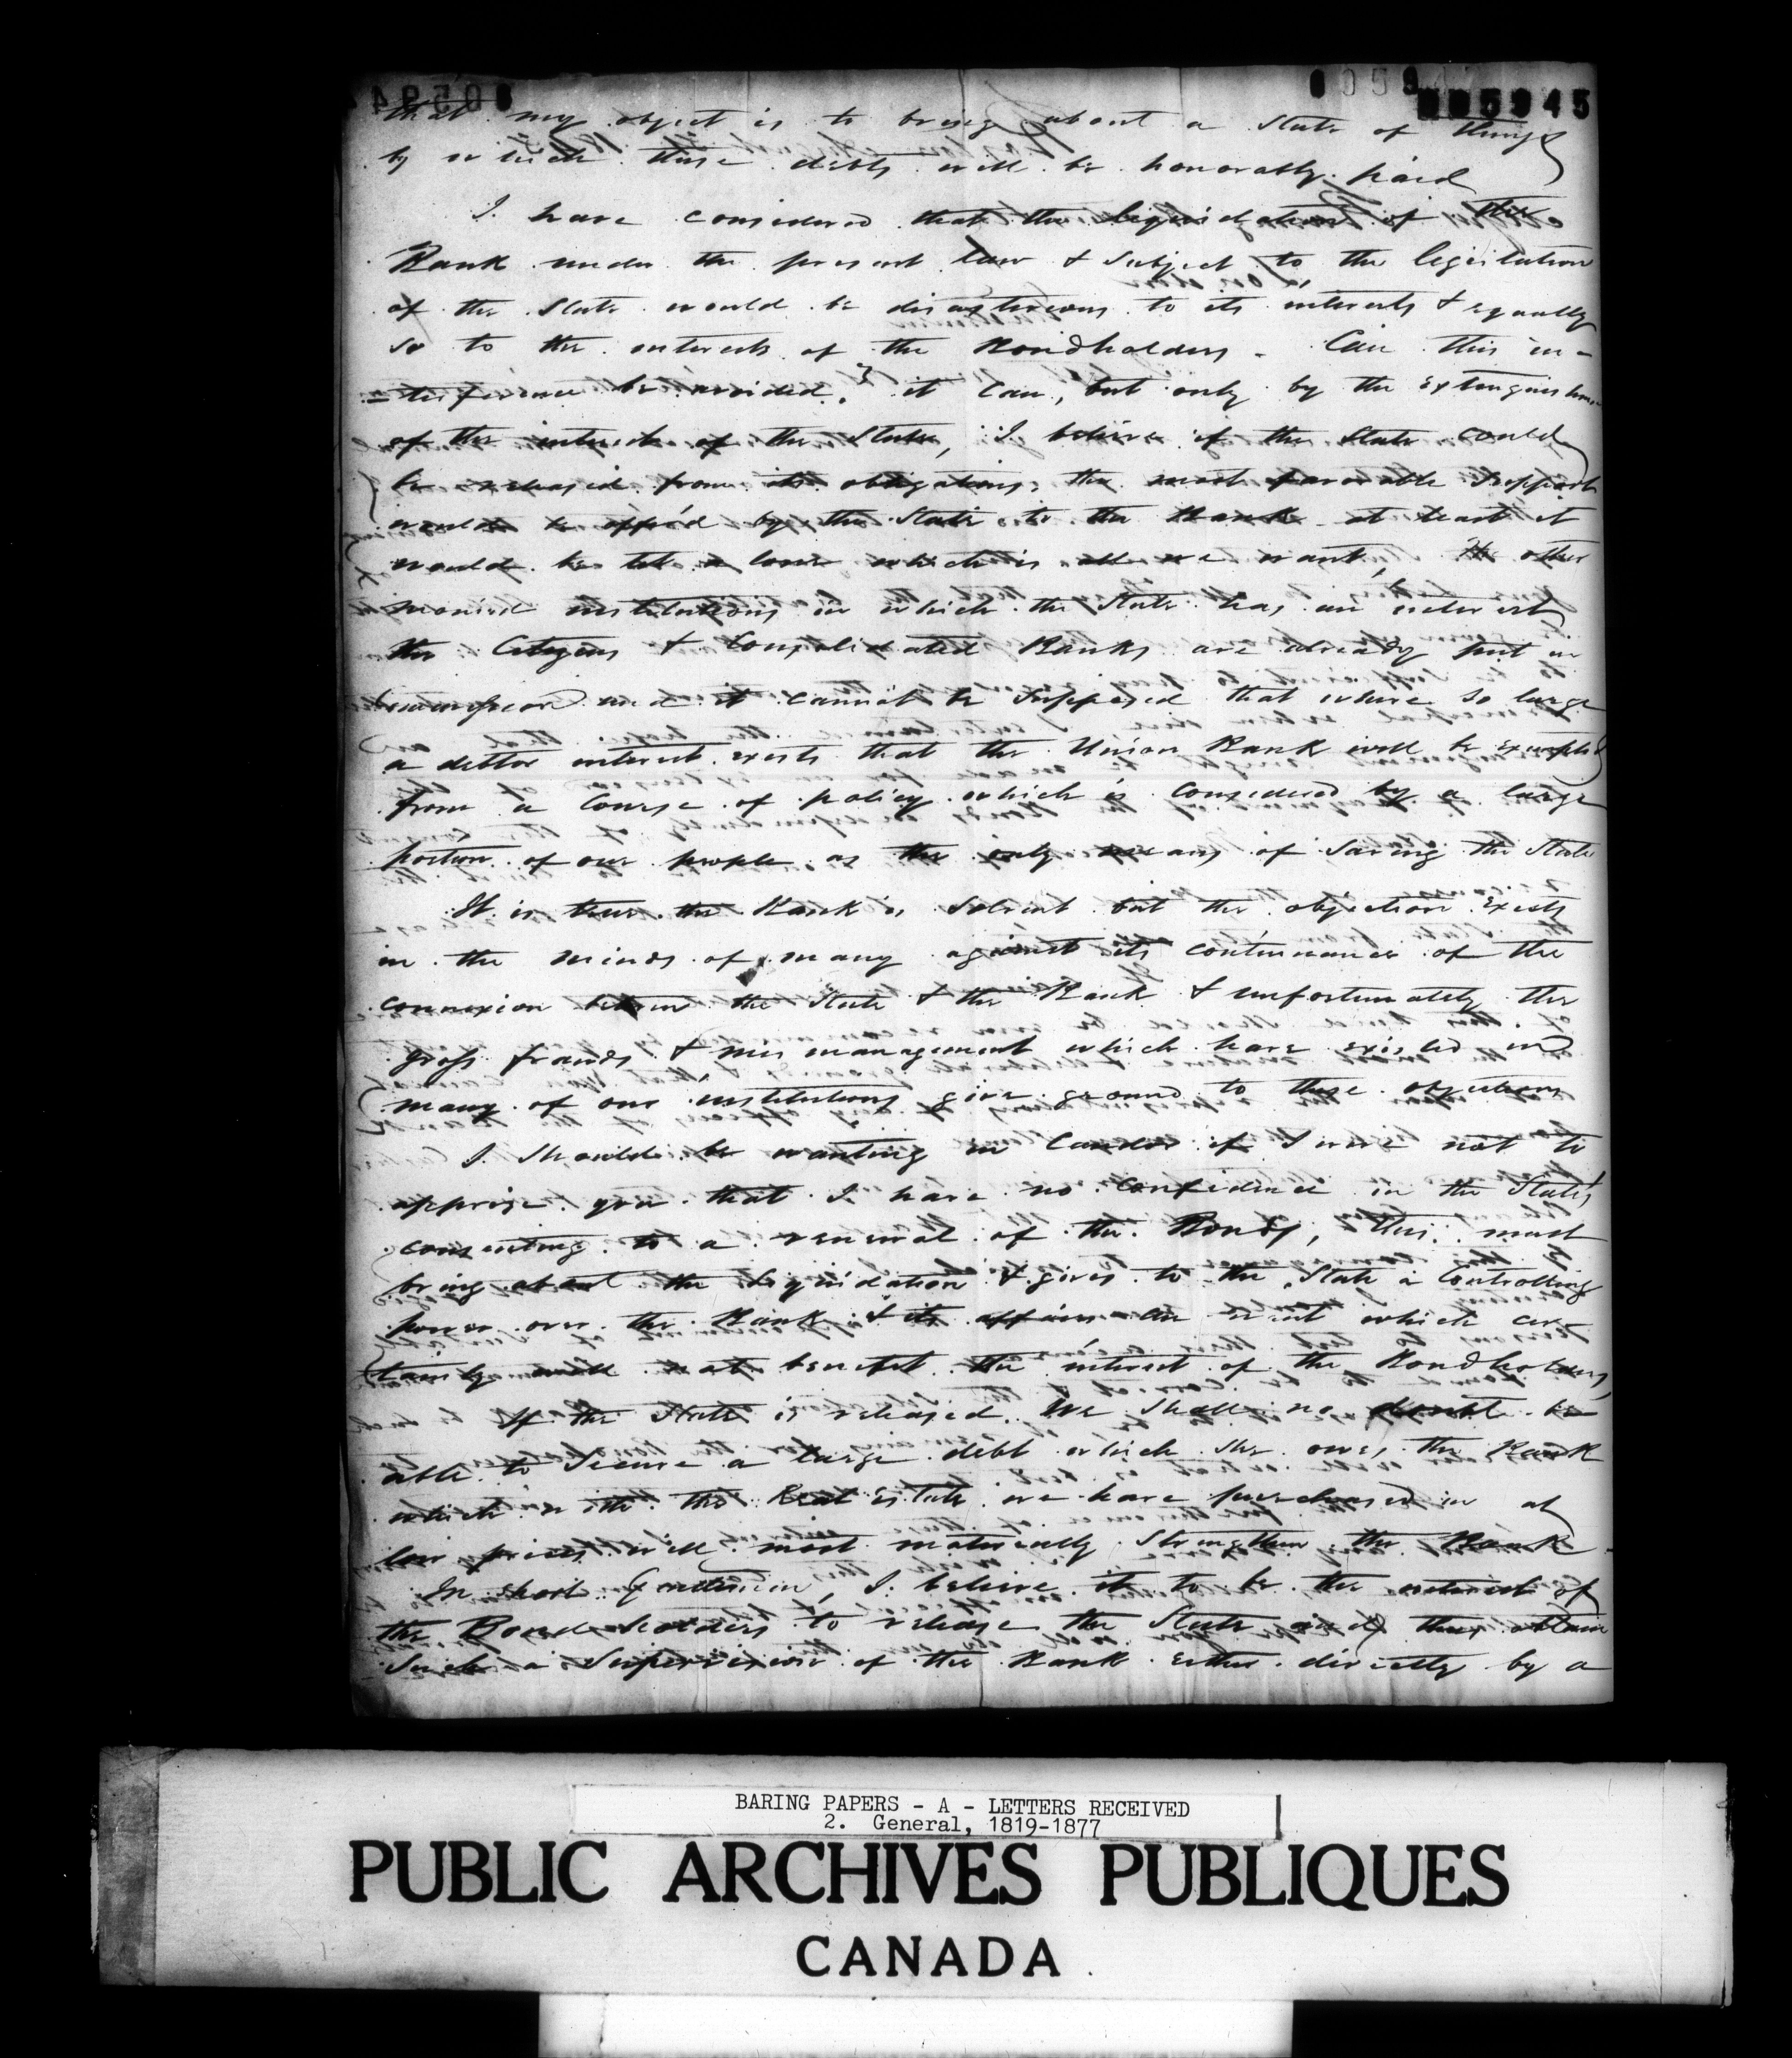 005945
that my object is to bring about a state of things
by which these debts will be honorably paid
I have considered that the liquidation of the
Bank under the present law & subject to the legislation
of the State would be disasterious to its interests & equally
so to the interests of the Bondholders - Can this in-
-terference be avoided? it can, but only by the extinguishm
of the interest of the State, I believe if the State could
be released from its obligations, the most favorable support
would be app'd by the State to the Bank at least it
would be let a lone which is all we want, The other
monied institutions in which the State has an interest
the Citizens & Consolidated Banks are already put in
and it cannot be supposed that where so large
a debtor interest exists that the Union Bank will be exempted
from a course of policy which is considered by a large
portion of our people as the only means of saving the State
It is true the Bank is solvent but the objection exists
in the minds of many against its continuance of the
connexion between the State & the Bank & unfortunately the
gross frauds & mismanagement which have existed in
many of our institutions give ground to these objections
I should be wanting in candor if I were not to
apprise you that I have no confidence in the State's
consenting to a renewal of the Bonds, this must
bring about the liquidation & gives to the State a Controlling
power over the Bank & its affairs an event which cer-
tainly will not benefit the interest of the Bondholders,
If the State is released. We shall no doubt be
able to secure a large debt which she owes the Bank
which with the Real Estate we have purchased in at
low prices will most materially strengthen the Bank -
In short Gentlemen, I believe it to be the interest of
the Bond holders to release the State and thus obtain
such a supervision of the Bank either directly by a
BARING PAPERS - A - LETTERS RECEIVED
2. General, 1819-1877
PUBLIC ARCHIVES PUBLIQUES
CANADA